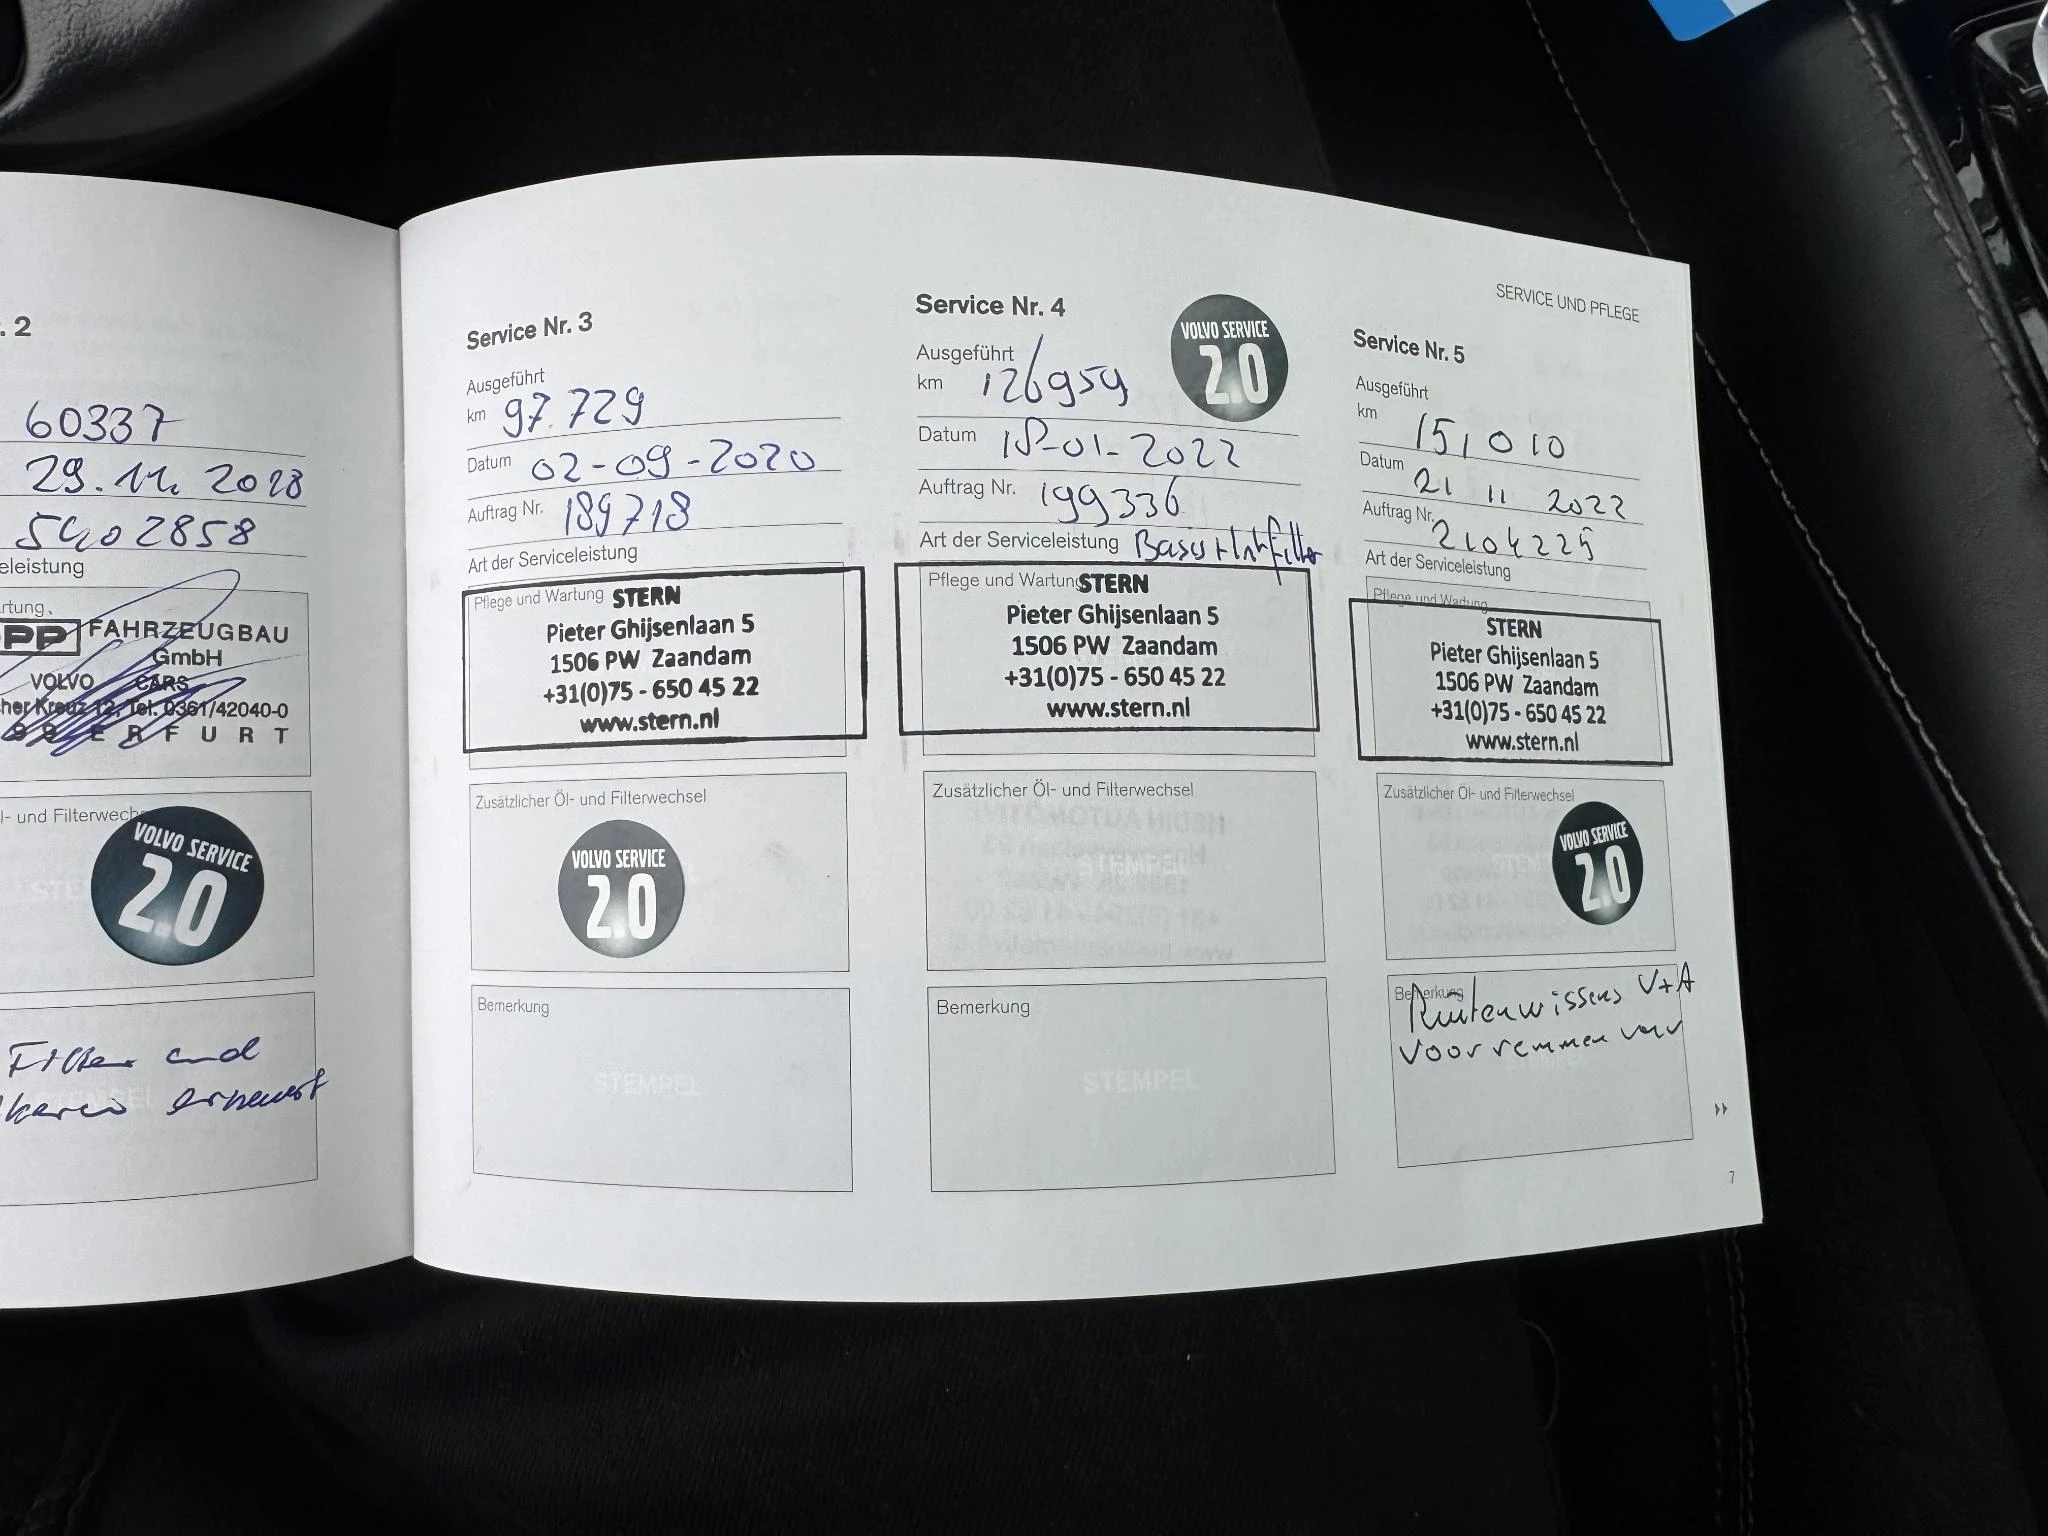 . 2
60337
29.11. 2018
5402858
eleistung
rtung,
PP FAHRZEUGBAU
GmbH
VOLVO CARS
her Kreuz 12, Tel. 0361/42040-0
99 E R F U R T
l- und Filterwech
VOLVO SERVICE
2.0
Filter und
erneuert
Service Nr. 3
Ausgeführt
km 97.729
Datum 02-09-2020
Auftrag Nr. 189718
Art der Serviceleistung
Pflege und Wartung STERN
Pieter Ghijsenlaan 5
1506 PW Zaandam
+31(0)75 - 650 45 22
www.stern.nl
Zusätzlicher Öl- und Filterwechsel
VOLVO SERVICE
2.0
Bemerkung
STEMPEL
Service Nr. 4
VOLVO SERVICE
2.0
Ausgeführt
km 126959
Datum 18-01-2022
Auftrag Nr. 199336
Art der Serviceleistung Basis +
Pflege und Wartung STERN
Pieter Ghijsenlaan 5
1506 PW Zaandam
+31(0)75 - 650 45 22
www.stern.nl
Zusätzlicher Öl- und Filterwechsel
STEMPEL
Bemerkung
STEMPEL
SERVICE UND PFLEGE
Service Nr. 5
Ausgeführt
km 151010
Datum 21 11 2022
Auftrag Nr. 2104225
Art der Serviceleistung
Pflege und Wartung
STERN
Pieter Ghijsenlaan 5
1506 PW Zaandam
+31(0)75 - 650 45 22
www.stern.nl
Zusätzlicher Öl- und Filterwechsel
VOLVO SERVICE
2.0
Bemerkung
Ruitenwissers V+A
Voorremmen
7